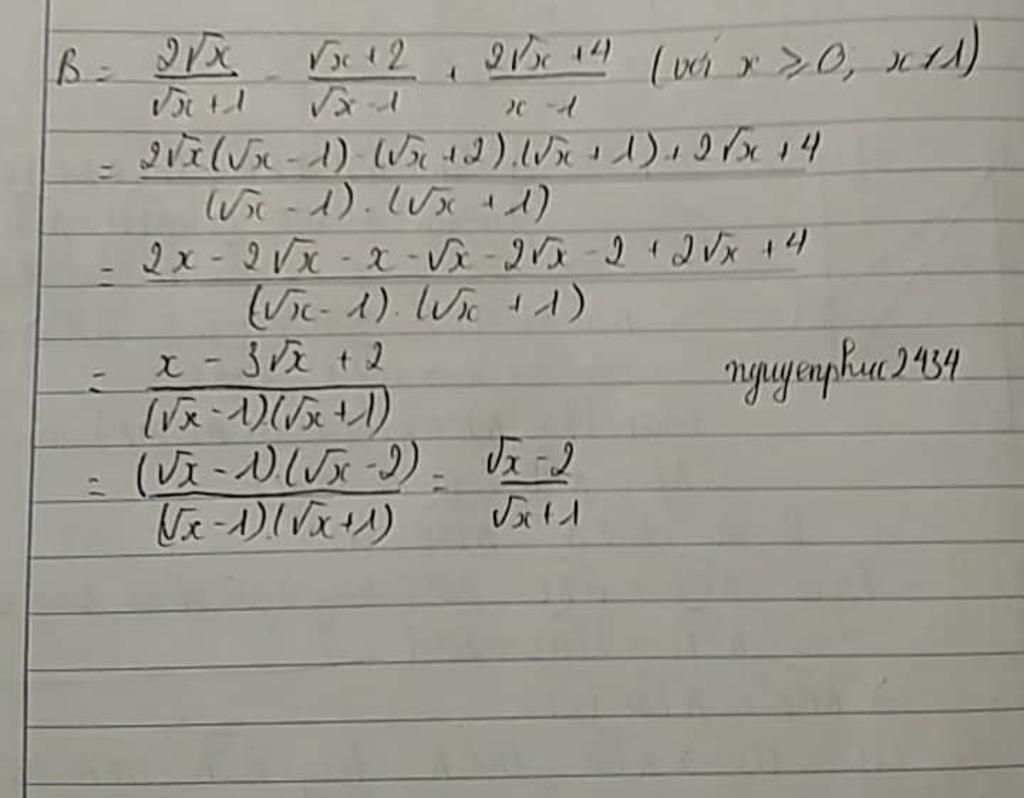 B = \frac{2\sqrt{x}}{\sqrt{x}+1} - \frac{\sqrt{x}+2}{\sqrt{x}-1} + \frac{2\sqrt{x}+4}{x-1} (với x ≥ 0, x ≠ 1)
= \frac{2\sqrt{x}(\sqrt{x}-1)-(\sqrt{x}+2).(\sqrt{x}+1)+2\sqrt{x}+4}{(\sqrt{x}-1).(\sqrt{x}+1)}
= \frac{2x-2\sqrt{x}-x-\sqrt{x}-2\sqrt{x}-2+2\sqrt{x}+4}{(\sqrt{x}-1).(\sqrt{x}+1)}
= \frac{x-3\sqrt{x}+2}{(\sqrt{x}-1)(\sqrt{x}+1)}
nguyenphuc2434
= \frac{(\sqrt{x}-1).(\sqrt{x}-2)}{(\sqrt{x}-1).(\sqrt{x}+1)} = \frac{\sqrt{x}-2}{\sqrt{x}+1}